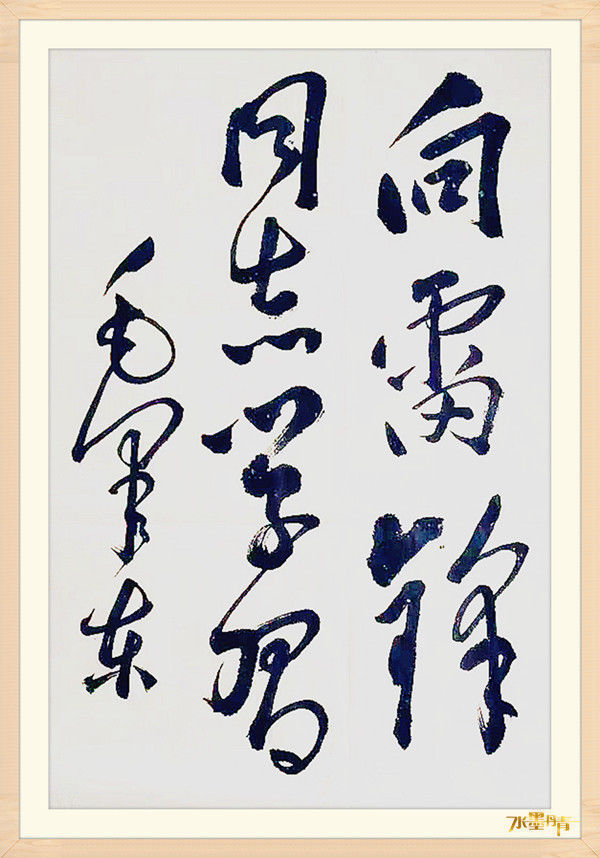 向雷锋
同志学习
毛泽东
水墨丹青